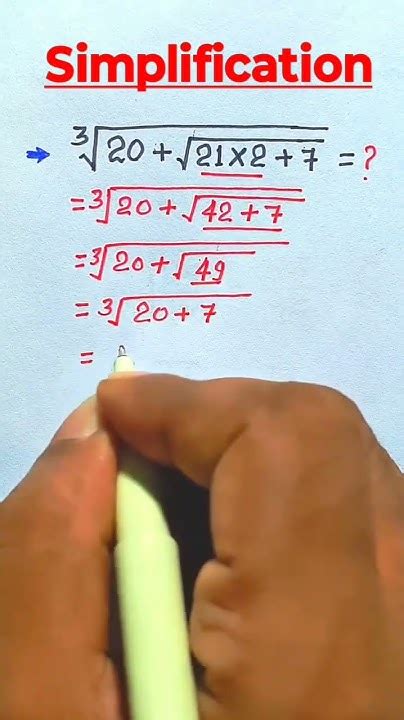 Simplification
→ ∛(20 + √(21×2 + 7)) = ?
= ∛(20 + √(42 + 7))
= ∛(20 + √49)
= ∛(20 + 7)
=